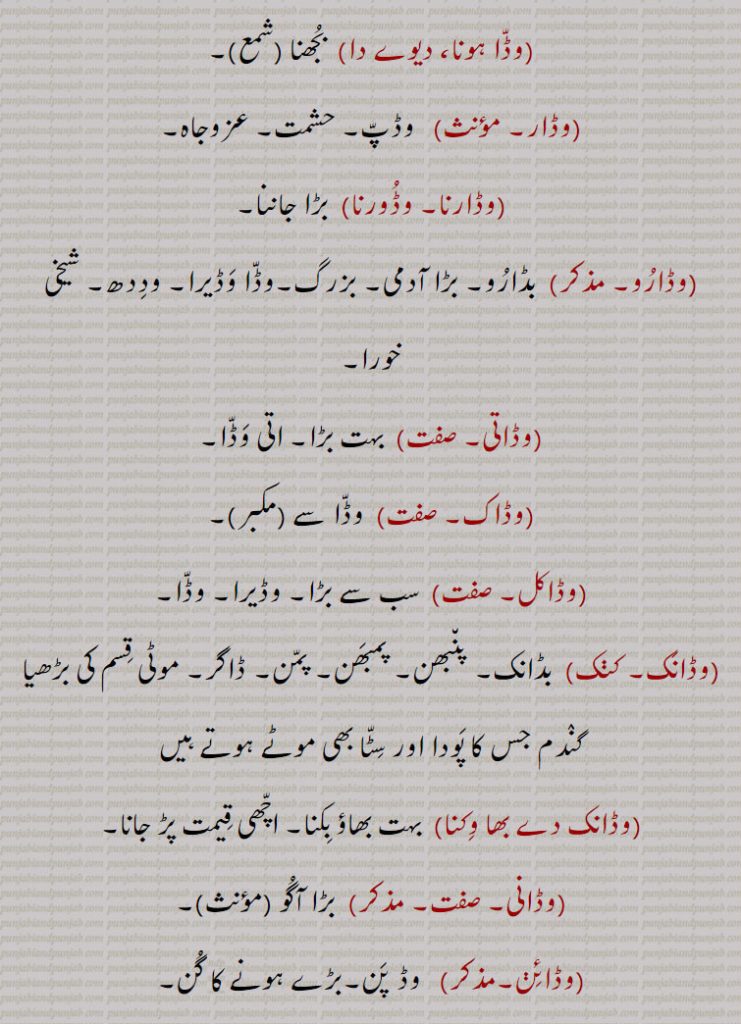 (وڈّا ہونا، دیوے دا) بُجھنا (شمع)۔
(وڈار۔ مؤنث) وڈپّ۔ حشمت۔ عزوجاہ۔
(وڈارنا۔ وڈُورنا) بڑا جاننا۔
(وڈارُو۔ مذکر) بڈارُو۔ بڑا آدمی۔ بزرگ۔وڈّا وَڈیرا۔ ودِدھ۔ شیخی
خورا۔
(وڈاتی۔ صفت) بہت بڑا۔ اتی وَڈّا۔
(وڈاک۔ صفت) وڈّا سے (مکبر)۔
(وڈاکل۔ صفت) سب سے بڑا۔ وڈیرا۔ وڈّا۔
(وڈانگ۔ کنک) بڈانک۔ پنّبھن۔ پمبھَن۔ پمّن۔ ڈاگر۔ موٹی قِسم کی بڑھیا
گندم جس کا پَودا اور سِٹّا بھی موٹے ہوتے ہیں
(وڈانک دے بھا وِکنا) بہت بھاؤ بِکنا۔ اچّھی قِیمت پڑ جانا۔
(وڈانی۔ صفت۔ مذکر) بڑا آگُو (مؤنث)۔
(وڈائِن۔مذکر) وڈ پَن۔بڑے ہونے کا گُن۔